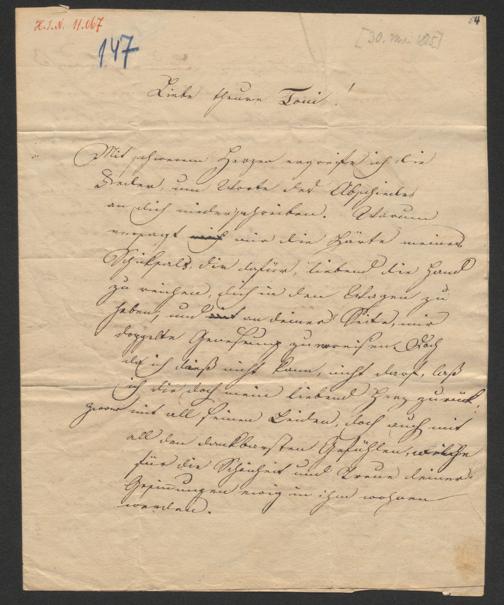 H.I.N. 11.067
147
84
[30. Mai 1825]
Liebe theure Toni!
Mit schwerem Herzen ergreife ich die
Feder, um Worte des Abschiedes
an dich niederzuschreiben. Warum
versagt mir die Härte meines
Schiksals, dir dafür, liebend die Hand
zu reichen, dich in den Wagen zu
heben, und an deiner Seite, mir
doppelte Genesung zu Doch
da ich dieß nicht kann, nicht darf, laß
ich dir doch mein liebend Herz zurük,
zwar mit all seinen Leiden, doch auch mit
all den dankbarsten Gefühlen, welche
für die Schönheit und Treue deiner
Gesinnungen ewig in ihm wohnen
werden.